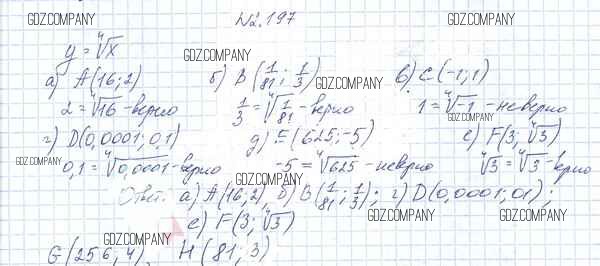 №2.197
y = ⁴√x
а) A(16; 2) б) B(1/81; 1/3) в) C(-1; 1)
2 = ⁴√16 - верно 1/3 = ⁴√1/81 - верно 1 = ⁴√-1 - неверно
г) D(0,0001; 0,1) д) E(625; -5) е) F(3; ⁴√3)
0,1 = ⁴√0,0001 - верно -5 = ⁴√625 - неверно ⁴√3 = ⁴√3 - верно
Ответ: а) A(16; 2), б) B(1/81; 1/3); г) D(0,0001; 01);
е) F(3; ⁴√3)
G(256, 4) H(81; 3)
GDZ.COMPANY
GDZ.COMPANY
GDZ.COMPANY
GDZ.COMPANY
GDZ.COMPANY
GDZ.COMPANY
GDZ.COMPANY
GDZ.COMPANY
GDZ.COMPANY
GDZ.COMPANY
GDZ.COMPANY